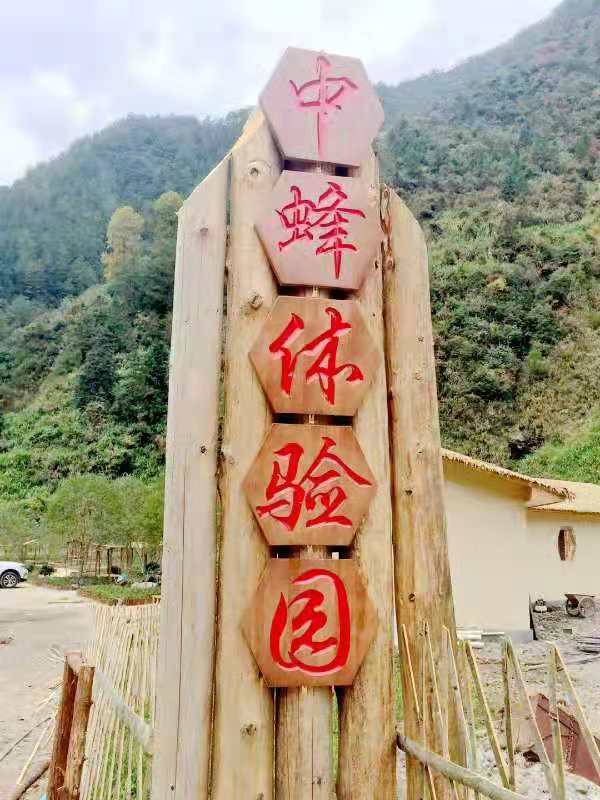 中蜂体验园